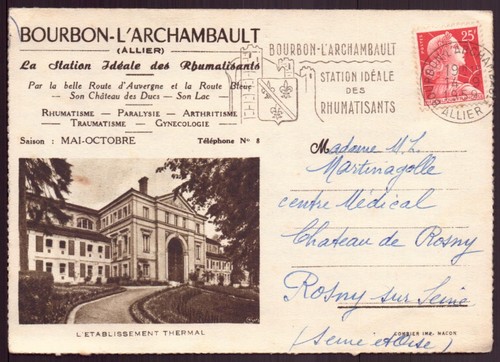 BOURBON-L'ARCHAMBAULT
(ALLIER)
La Station Idéale des Rhumatisants
Par la belle Route d'Auvergne et la Route Bleue
— Son Château des Ducs — Son Lac —
RHUMATISME — PARALYSIE — ARTHRITISME
— TRAUMATISME — GYNECOLOGIE —
Saison : MAI-OCTOBRE
Téléphone N° 8
L'ETABLISSEMENT THERMAL
BOURBON-L'ARCHAMBAULT
STATION IDÉALE
DES
RHUMATISANTS
25F
ALLIER
Madame M. L.
Martinagolle
centre Médical
Chateau de Rosny
Rosny sur Seine
(Seine et Oise)
IMP. MACON